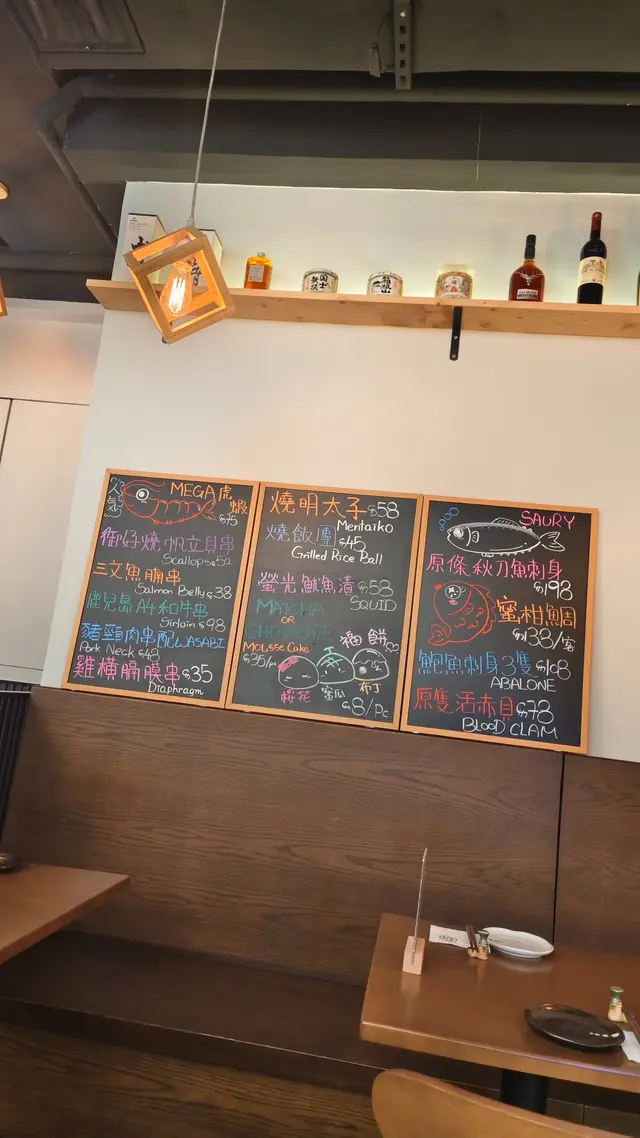 人氣
MEGA 虎蝦
$75
御好燒帆立貝串
Scallops $52
三文魚腩串
Salmon Belly $38
鹿兒島A4和牛串
Sirloin $98
豬頸肉串配WASABI
Pork Neck $48
雞橫膈膜串 $35
Diaphragm
燒明太子 $58
Mentaiko
燒飯團 $45
Grilled Rice Ball
螢光魷魚漬 $58
SQUID
MATCHA
OR
CHOCOLATE
MOUSSE Cake
$35/pc
福餅
櫻花
蜜瓜
布丁
$8/Pc
SAURY
原條秋刀魚刺身
$198
蜜柑鯛
$138/客
鮑魚刺身3隻 $108
ABALONE
原隻活赤貝 $78
BLOOD CLAM